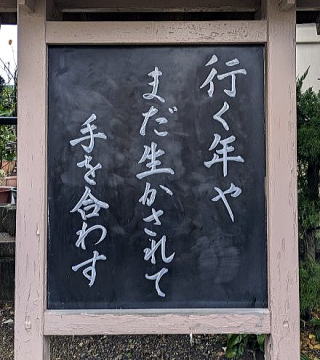 行く年や
まだ生かされて
手を合わす